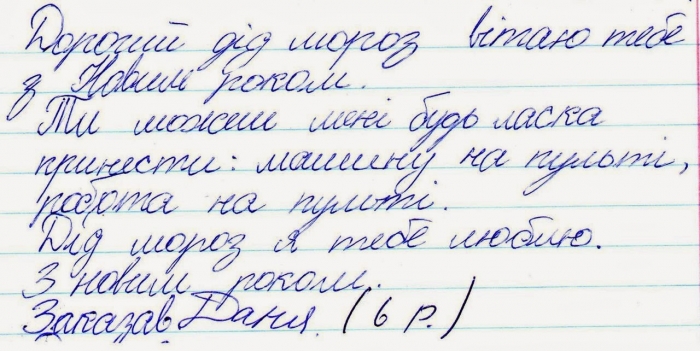 Дорогий дід мороз вітаю тебе
з Новим роком.
Ти можеш мені будь ласка
принести: машину на пульті,
робота на пульті.
Дід мороз я тебе люблю.
З новим роком.
Заказав Даня. (6 р.)